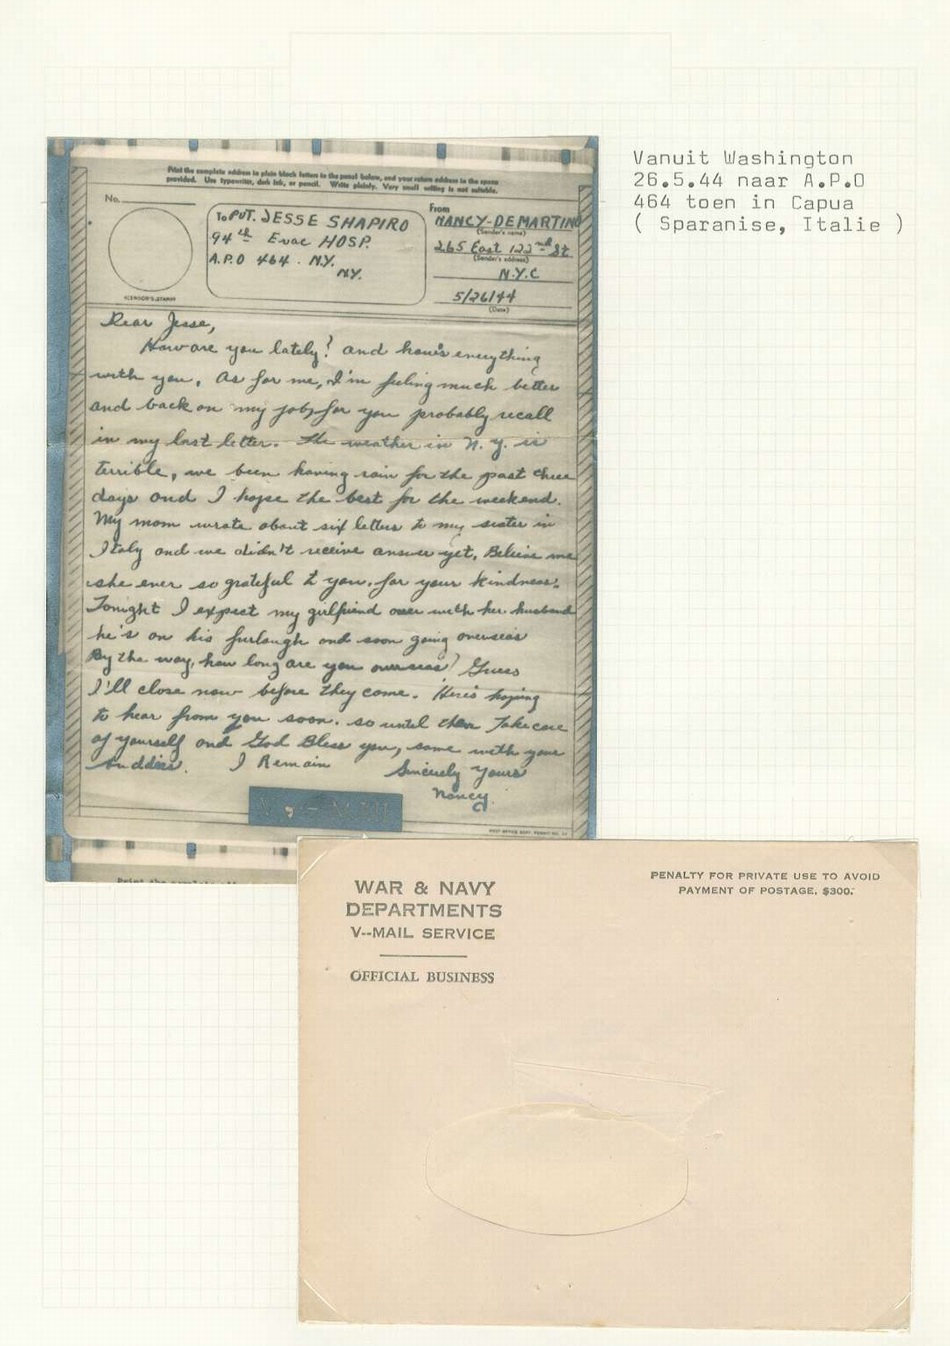 Vanuit Washington
26.5.44 naar A.P.O
464 toen in Capua
( Sparanise, Italie )
Print the complete address in plain block letters in the panel below, and your return address in the space
provided. Use typewriter, dark ink, or pencil. Write plainly. Very small writing is not suitable.
No.
To PVT. JESSE SHAPIRO
94th Evac HOSP.
A.P.O 464. N.Y.
N.Y.
(CENSOR'S STAMP)
From
NANCY-DEMARTINO
(Sender's name)
265 East 122nd St
(Sender's address)
N.Y.C
5/26/44
(Date)
Dear Jesse,
How are you lately? and how's everything
with you. As for me, I'm feeling much better
and back on my job, for you probably recall
in my last letter. The weather in N.Y. is
terrible, we been having rain for the past three
days and I hope the best for the weekend.
My mom wrote about six letters to my sister in
Italy and we didn't receive answer yet. Believe me
she ever so grateful to you, for your kindness.
Tonight I expect my girlfriend over with her husband
he's on his furlough and soon going overseas
By the way, how long are you overseas? Guess
I'll close now before they come. Here's hoping
to hear from you soon. so until then Take care
of yourself and God Bless you, same with your
buddies. I Remain Sincerely yours
Nancy
V-MAIL
POST OFFICE DEPT. PERMIT NO.
WAR & NAVY
DEPARTMENTS
V--MAIL SERVICE
OFFICIAL BUSINESS
PENALTY FOR PRIVATE USE TO AVOID
PAYMENT OF POSTAGE, $300.